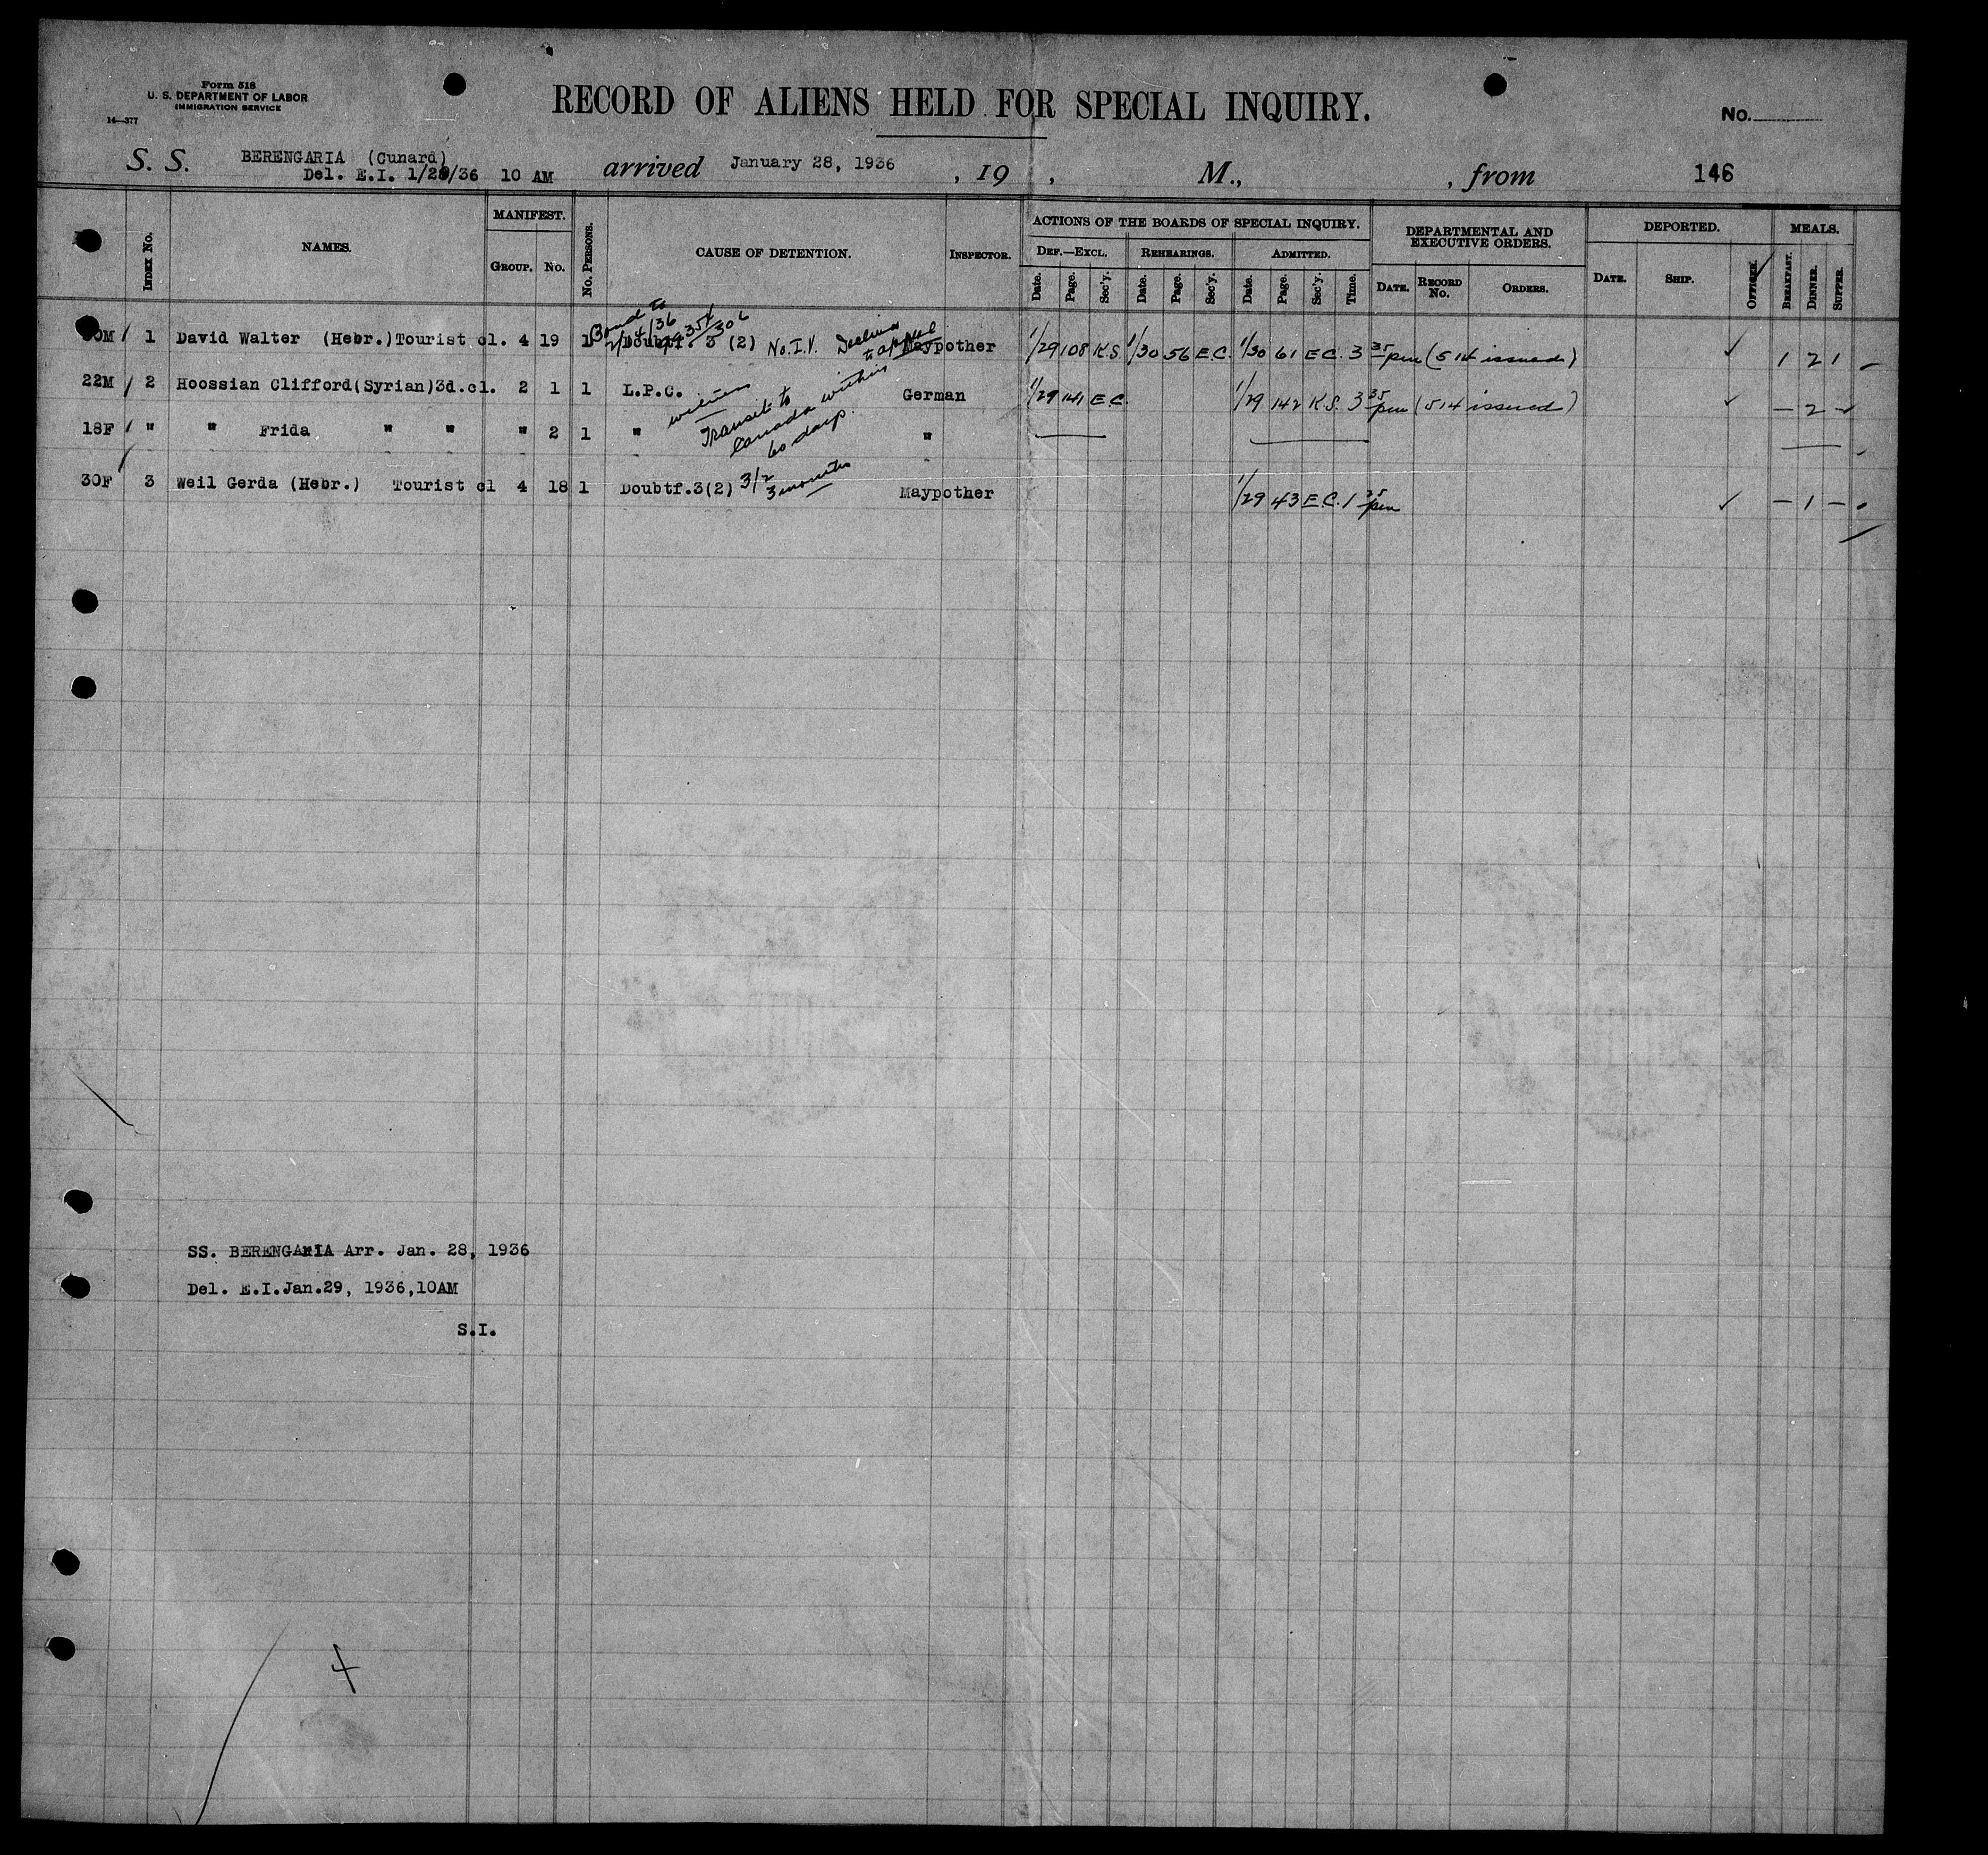 Form 518
U. S. DEPARTMENT OF LABOR
IMMIGRATION SERVICE
14—377
RECORD OF ALIENS HELD FOR SPECIAL INQUIRY.
No.
S. S. BERENGARIA (Cunard) arrived January 28, 1936 , 19 , M., , from 146
Del. E.I. 1/29/36 10 AM
INDEX No. NAMES. MANIFEST. GROUP. No. No. PERSONS. CAUSE OF DETENTION. INSPECTOR.
ACTIONS OF THE BOARDS OF SPECIAL INQUIRY.
DEF.—EXCL. Date. Page. Sec'y. REHEARINGS. Date. Page. Sec'y. ADMITTED. Date. Page. Sec'y. Time.
DEPARTMENTAL AND EXECUTIVE ORDERS. DATE. RECORD No. ORDERS.
DEPORTED. DATE. SHIP. OFFICER.
MEALS. BREAKFAST. DINNER. SUPPER.
Bond to
0M 1 David Walter (Hebr.)Tourist cl. 4 19 1 Doubtf. 3 (2) No. I.V. Declined to appeal Maypother 1/29 108 K.S. 1/30 56 E.C. 1/30 61 E.C. 3 35 pm (514 issued) ✓ 1 2 1
22M 2 Hoossian Clifford(Syrian)3d.cl. 2 1 1 L.P.C. German 1/29 141 E.C. 1/29 142 K.S. 3 35 pm (514 issued) ✓ — 2 ✓
Transit to Canada within 60 days.
18F " " Frida " " " 2 1 " "
30F 3 Weil Gerda (Hebr.) Tourist cl 4 18 1 Doubtf.3(2) 3/2 3 months Maypother 1/29 43 E.C. 1 35 pm ✓ — 1 —
SS. BERENGARIA Arr. Jan. 28, 1936
Del. E.I.Jan.29, 1936,10AM
S.I.
4